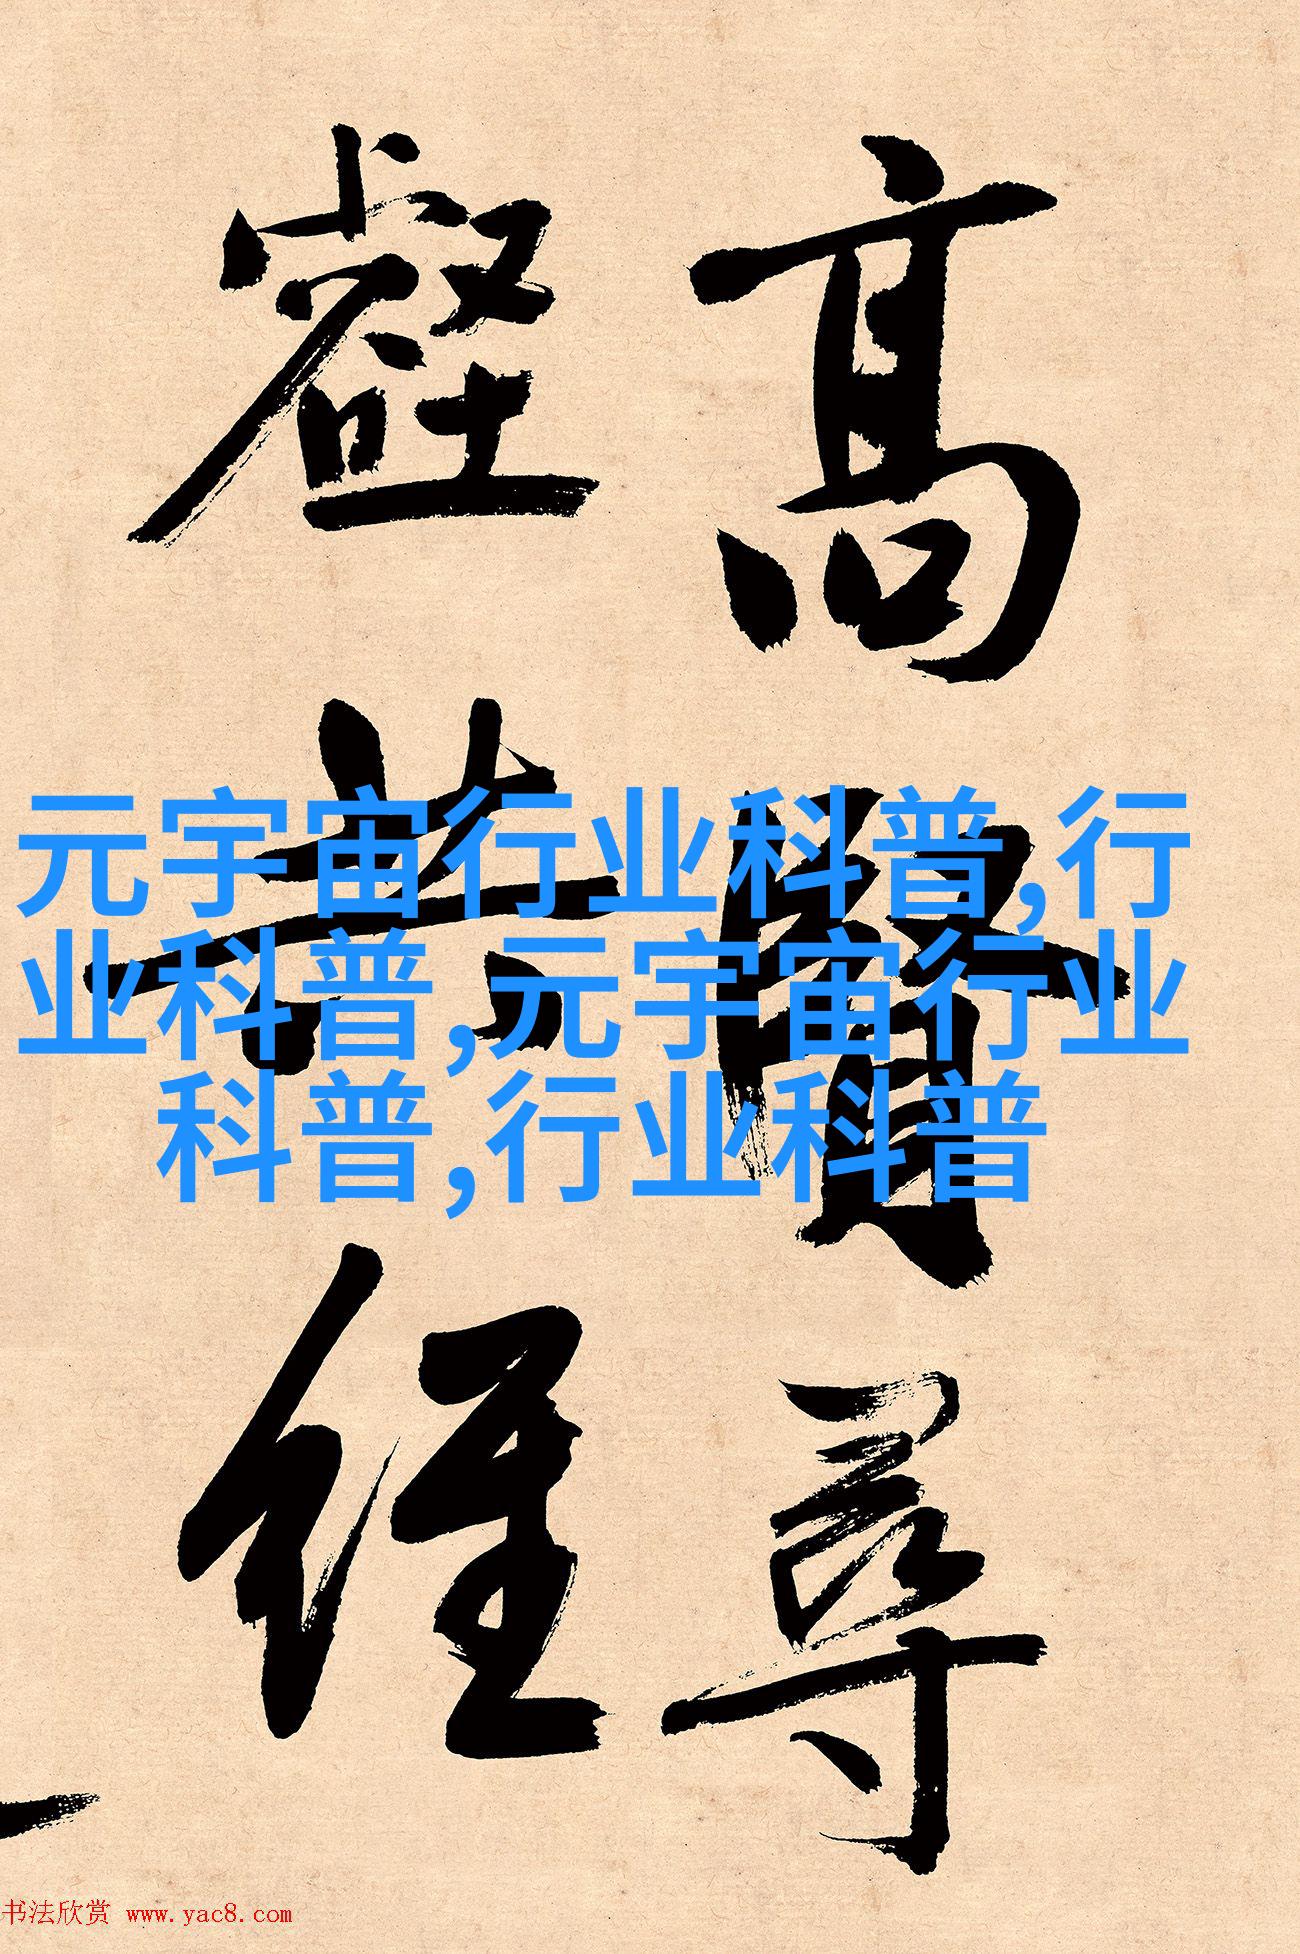 高賢尋
壑共經
元宇宙行业科普,行
业科普,元宇宙行业
科普,行业科普
书法欣赏 www.yac8.com